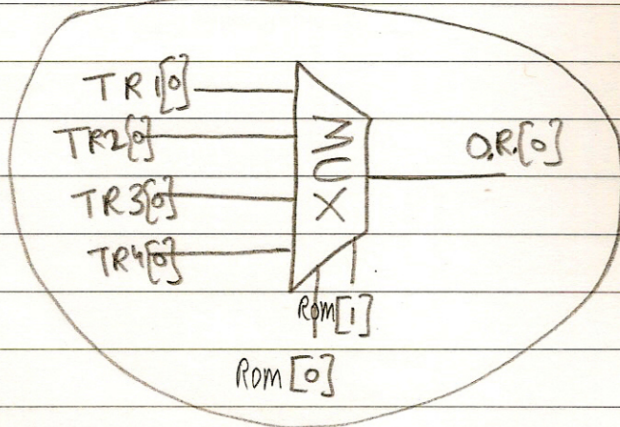 TR1[0]
TR2[0]
TR3[0]
TR4[0]
MUX
O.R.[0]
ROM[1]
ROM[0]